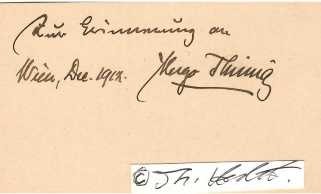 Zur Erinnerung an
Wien, Dec. 1912. Hugo Thimig
© Th.